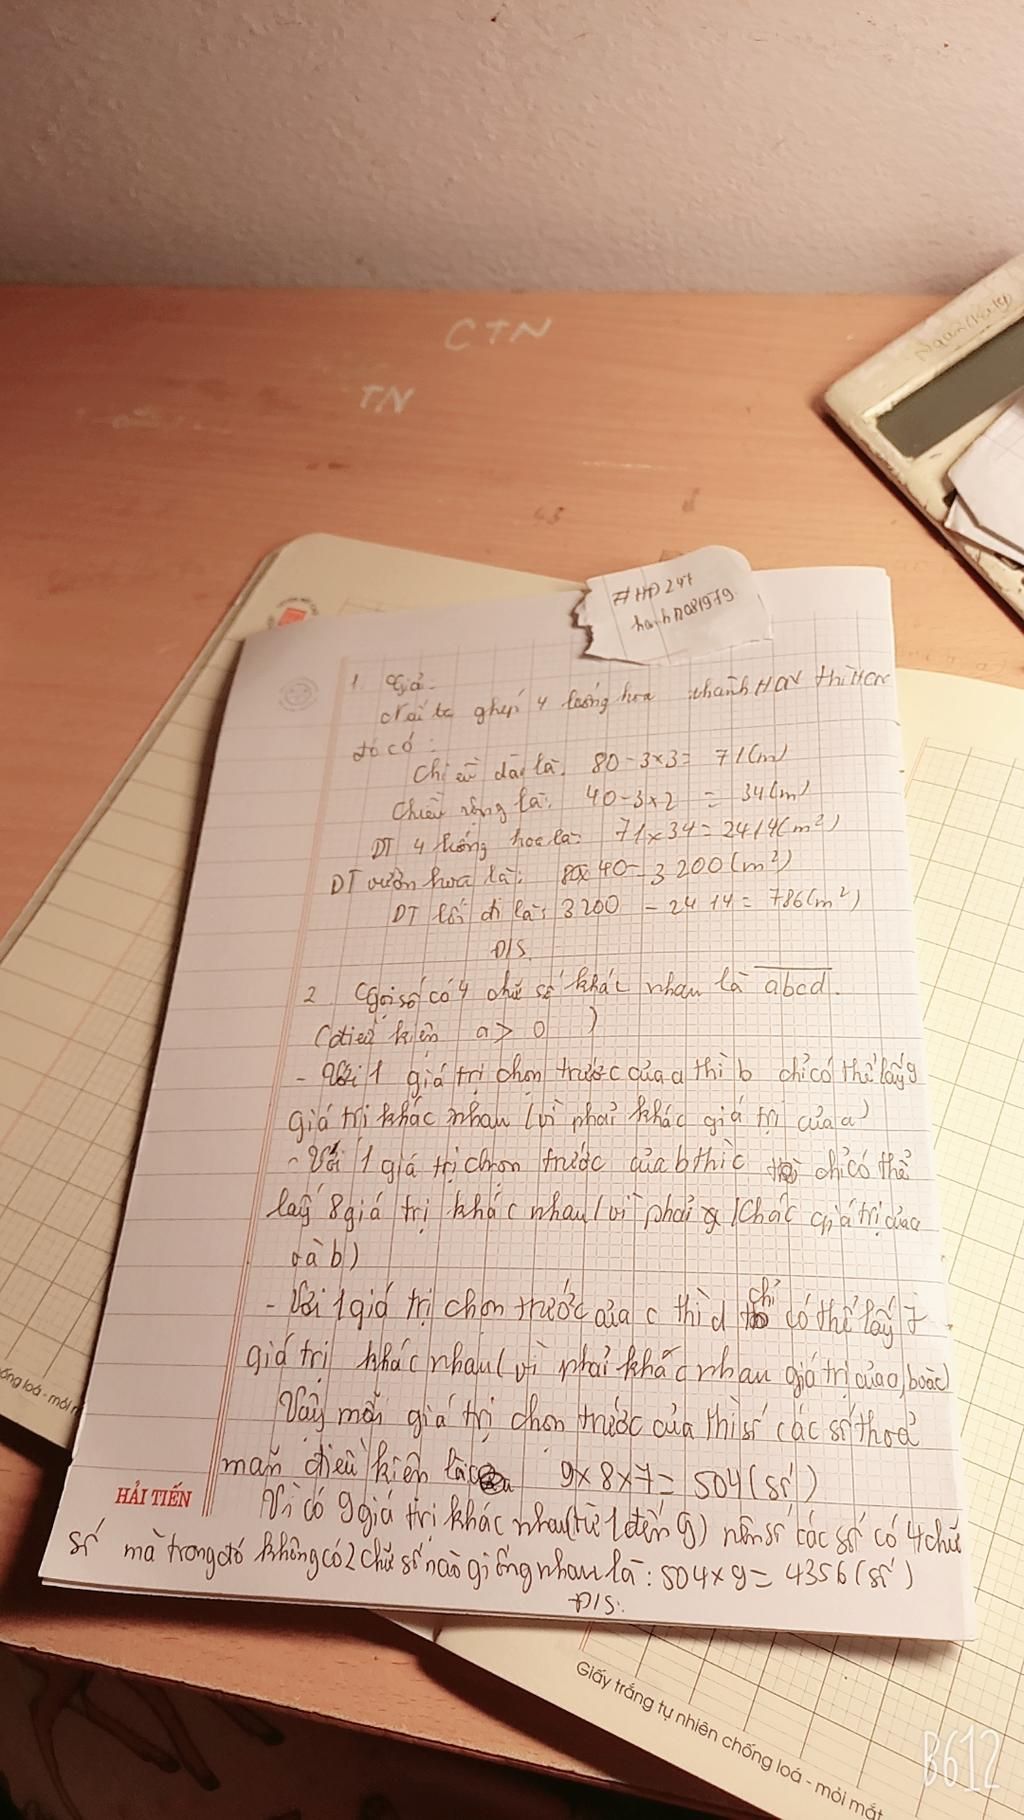 CTN
TN
Ngân(Ketep
#HĐ247
hanhna081979
1. Giả.
Nối ta ghép 4 luống hoa thành HCN thì HCN
đó có:
Chiều dài là: 80-3x3= 71(m)
Chiều rộng là: 40-3x2 = 34(m)
DT 4 luống hoa là: 71x34=2414(m²)
DT vườn hoa là: 80x40=3200(m²)
DT lối đi là: 3200 - 2414= 786(m²)
Đ/S
2 Gọi số có 4 chữ số khác nhau là abcd.
(điều kiện a > 0 )
- Với 1 giá trị chọn trước của a thì b chỉ có thể lấy 9
giá trị khác nhau (vì phải khác giá trị của a)
- Với 1 giá trị chọn trước của b thì c chỉ có thể
lấy 8 giá trị khác nhau (vì phải khác giá trị của a
và b)
- Với 1 giá trị chọn trước của c thì d chỉ có thể lấy 7
giá trị khác nhau (vì phải khác nhau giá trị của a, b và c)
Vậy mỗi giá trị chọn trước của thì số các số thoả
mãn điều kiện là 9x8x7= 504(số)
Vì có 9 giá trị khác nhau (từ 1 đến 9) nên số các số có 4 chữ
số mà trong đó không có 2 chữ số nào giống nhau là: 504x9= 4356(số)
Đ/S:
HẢI TIẾN
Giấy trắng tự nhiên chống loá - mỏi mắt
B612